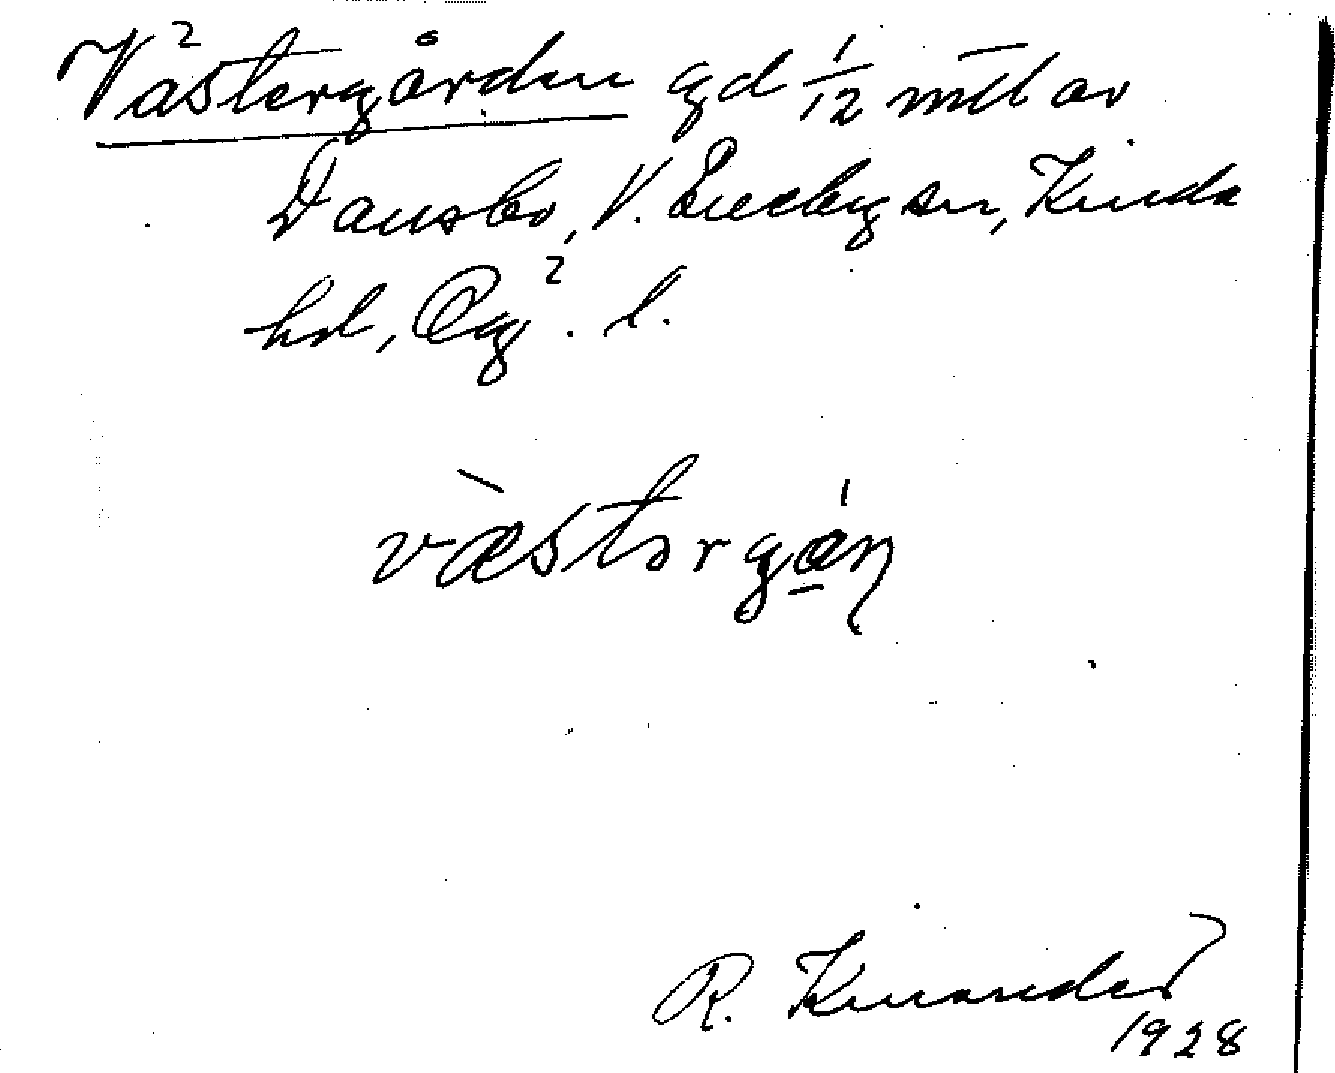 Västergården gd 1/12 mil av
Dansbo, V. Eneby sn, Kinda
hd, Ög. l.
v̀æstərgɑ́ɳ
R. Kinander
1928